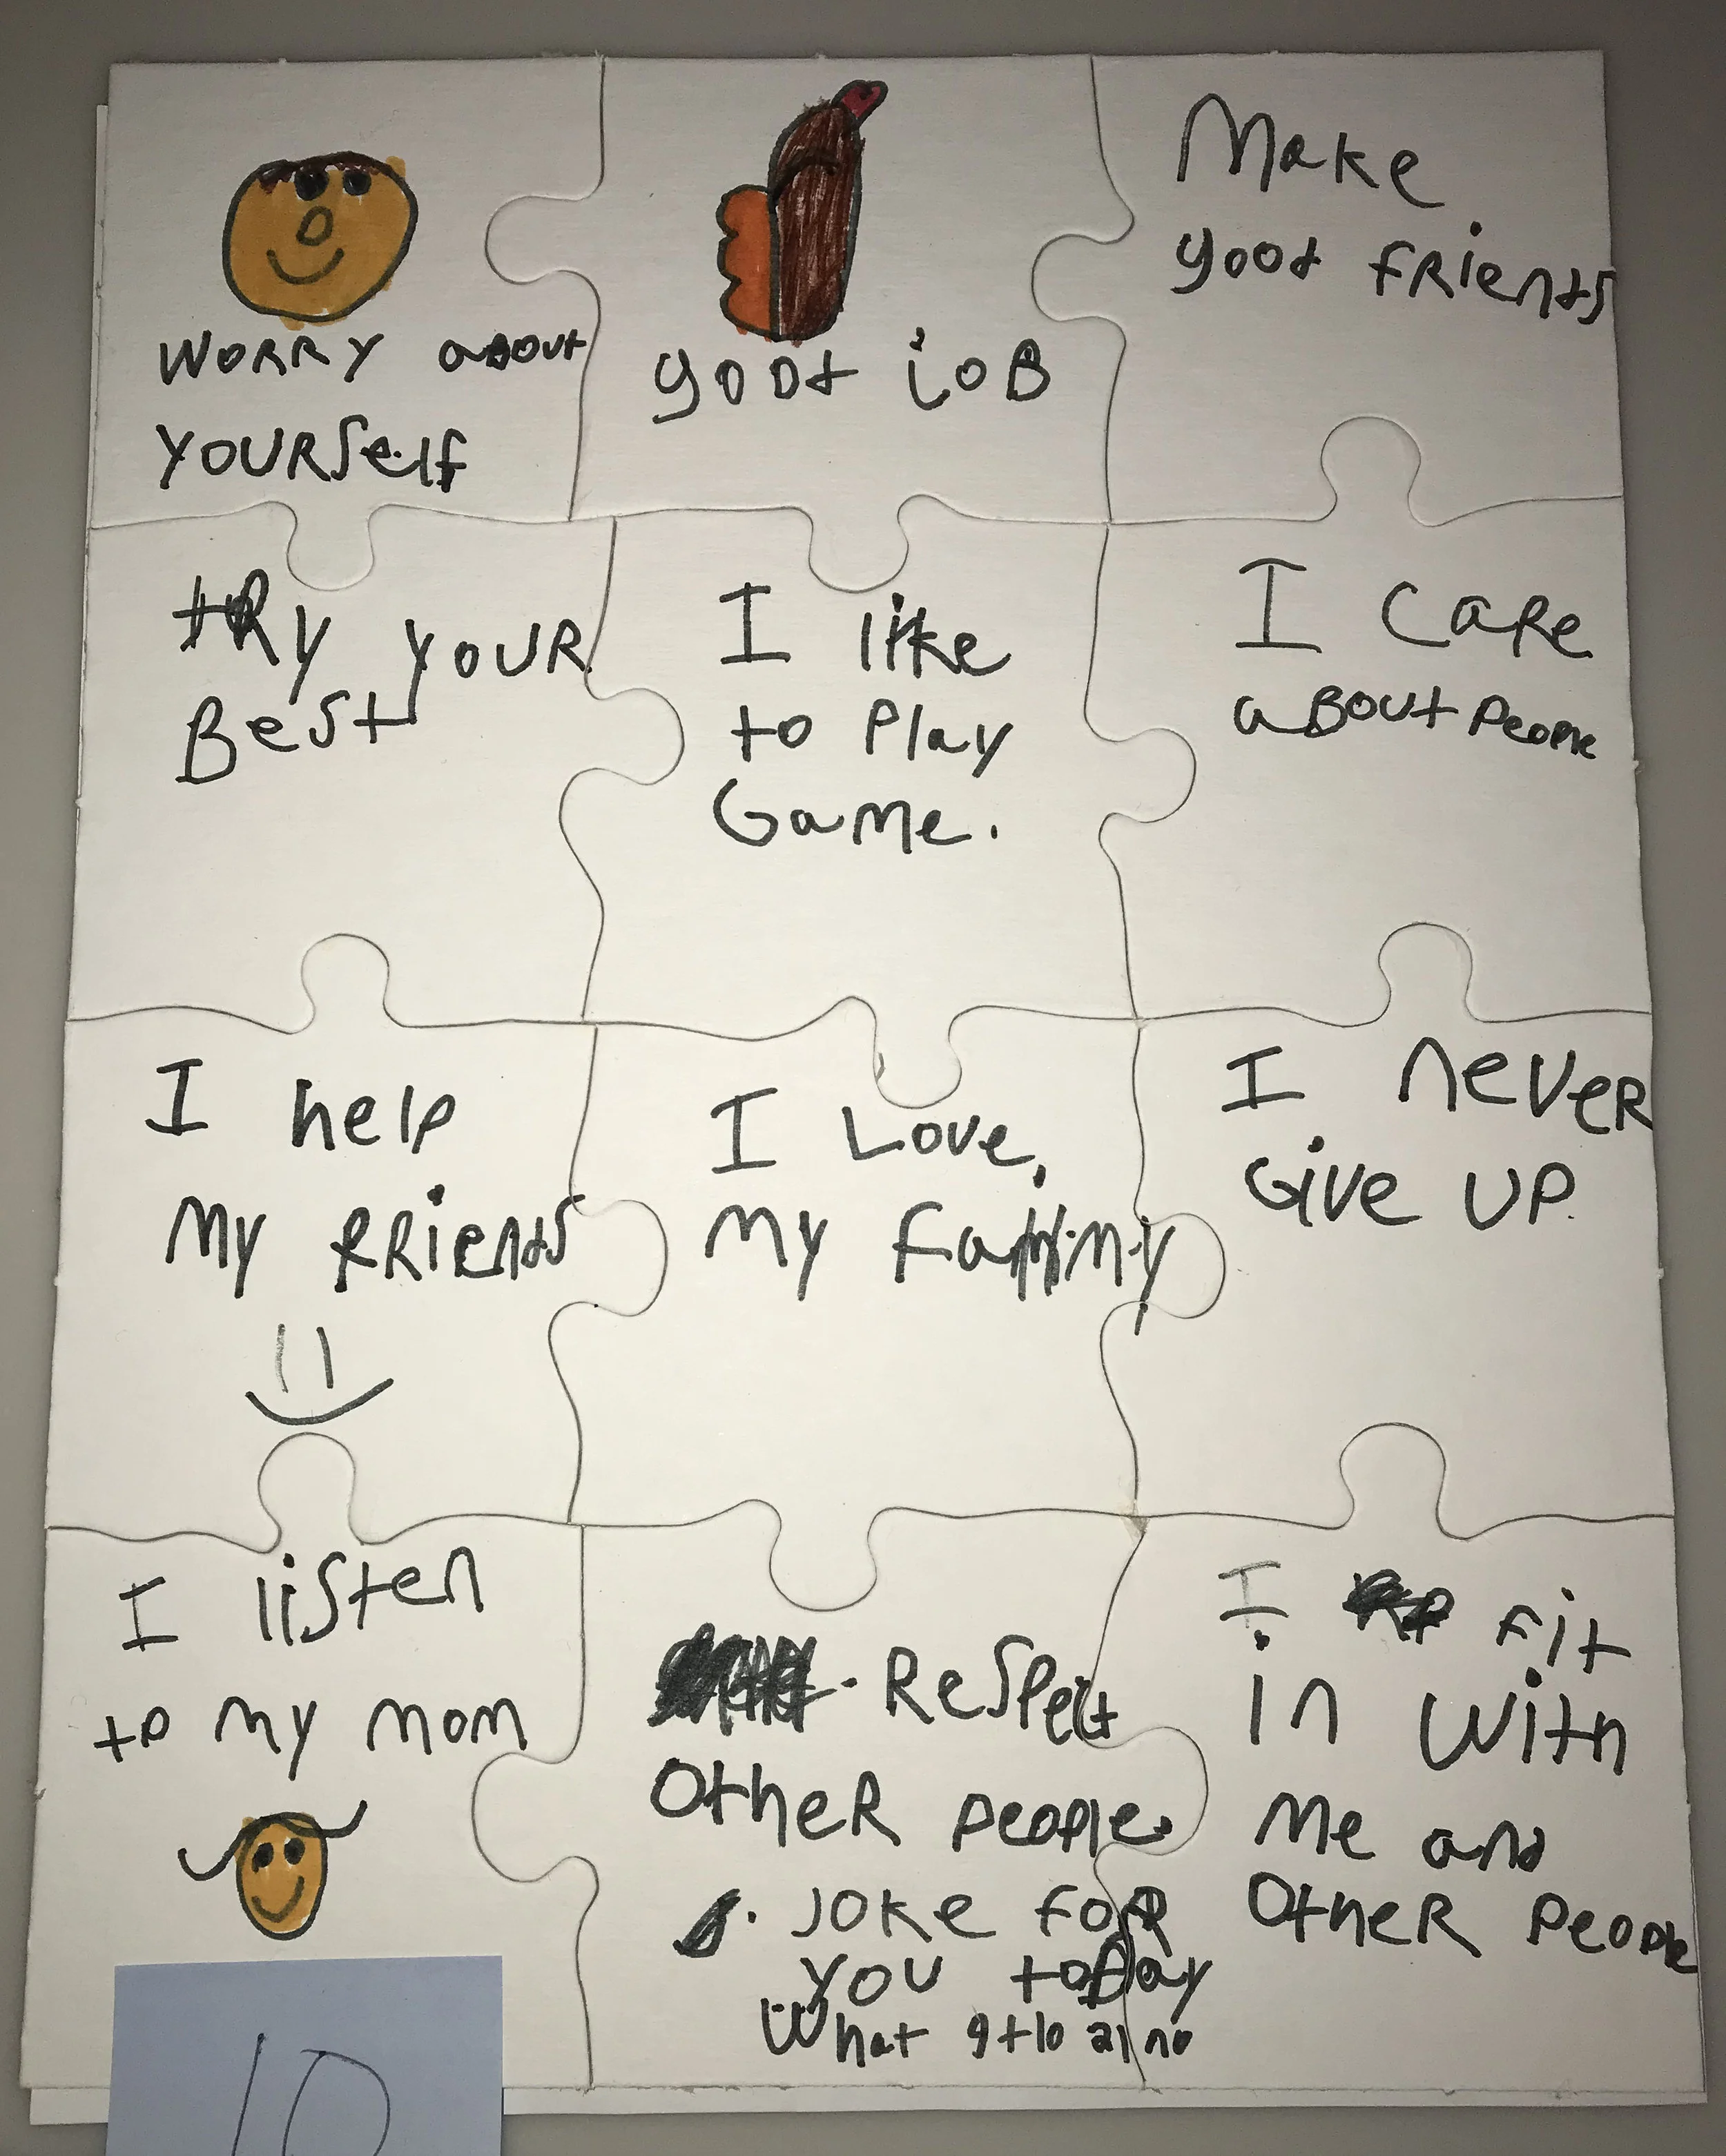 WORRY about
YOURSelf
good joB
Make
good fRiends
tRy YOUR
Best
I like
to Play
Game.
I CaRe
aBOUt PeoPle
I help
My fRiends
I Love,
My famimy
I neveR
Give UP.
I listen
to my mom
ResPect
OtheR People.
JOKe FOR
you toDay
What 9+10 21 no
I fit
in with
Me and
OtheR People
10